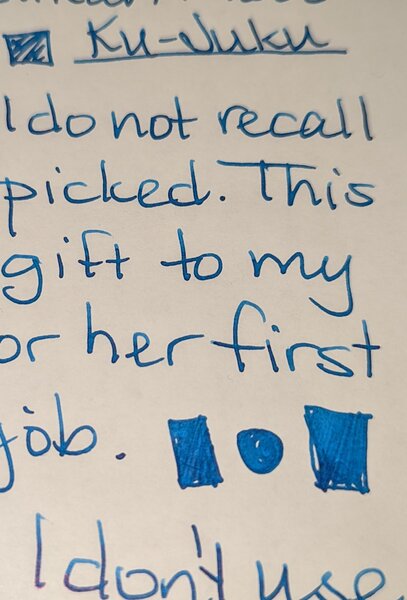 Ku-Juku
I do not recall
picked. This
gift to my
or her first
job.
I don't use